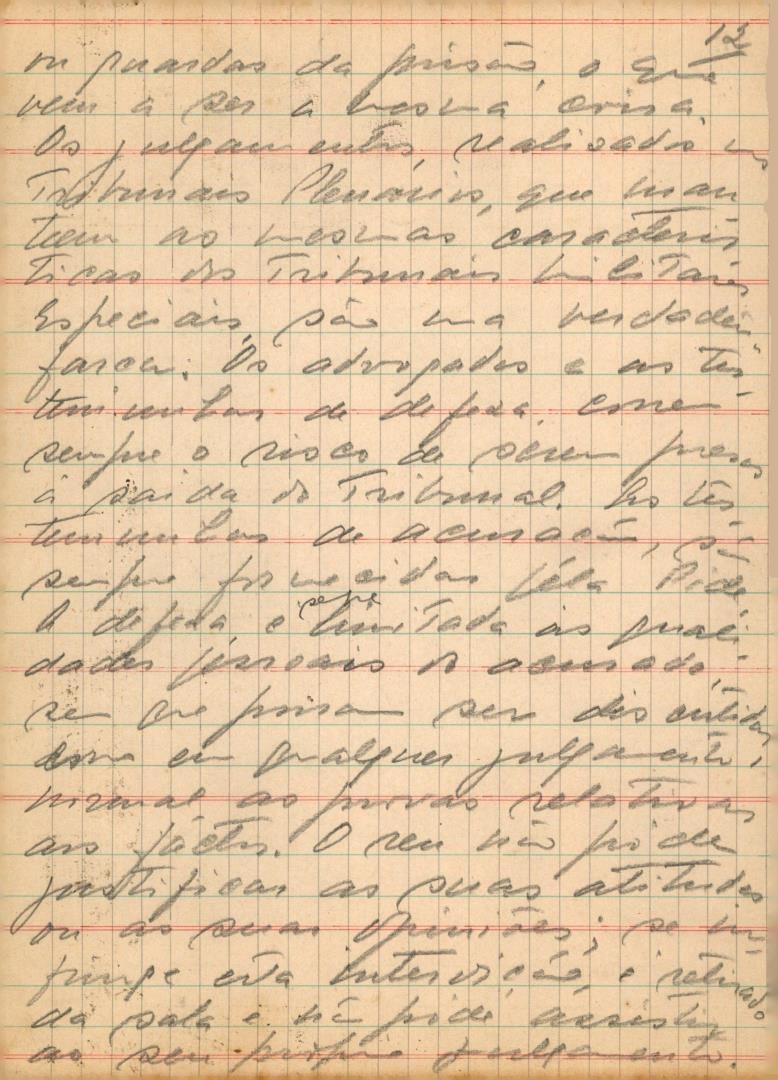 12
ou guardas da prisão, o que
vem a ser a mesma coisa.
Os julgamentos, realisados nos
Tribunais Plenários, que man
teem as mesmas caracterís
ticas dos Tribunais Militares
Especiais, são uma verdadei-
farça. Os advogados e as tes-
temunhas de defeza, correm
sempre o risco de serem presos
á saida do Tribunal. As tes-
temunhas de acusação, são
sempre fornecidas pela Pide.
A defeza, é sempre limitada ás quali-
dades pessoais do acusado,
sem que possam ser discutidas,
como em qualquer julgamento
normal as provas relativas
aos factos. O reu não póde
justificar as suas atitudes
ou as suas opiniões; se in-
fringe esta interdição, é retirado
da sala e não póde assistir
ao seu próprio julgamento.